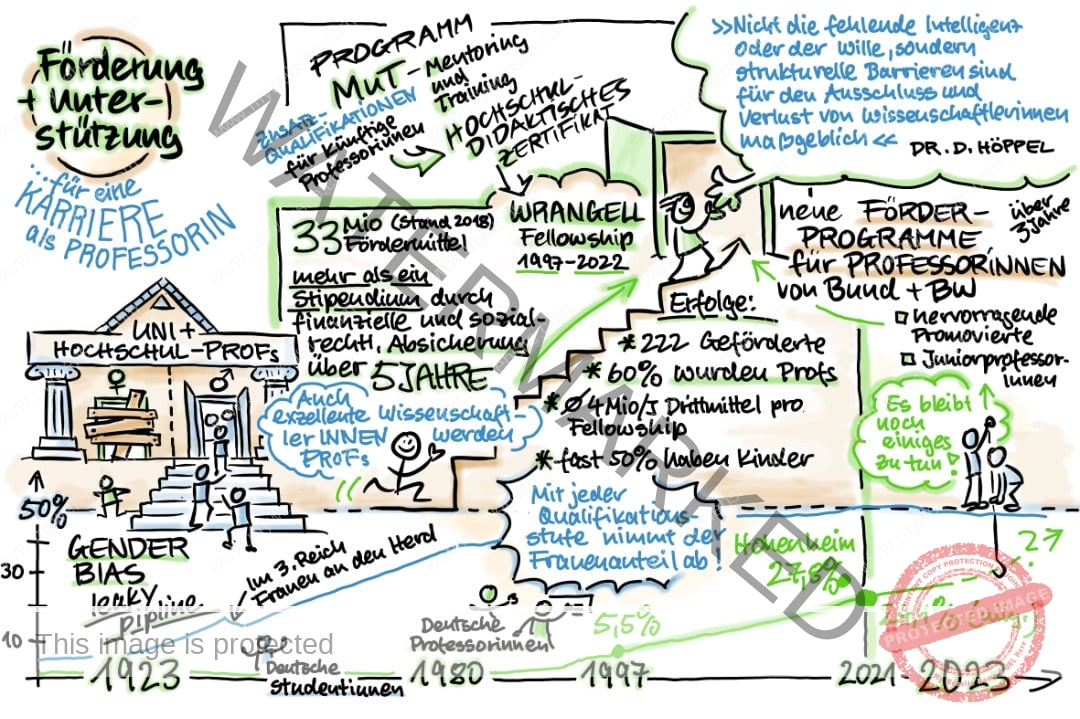 Förderung
+ Unter-
stützung
...für eine
KARRIERE
als PROFESSORIN
PROGRAMM
MuT - Mentoring
und
Training
ZUSATZ-
QUALIFIKATIONEN
für künftige
Professorinnen
HOCHSCHUL-
DIDAKTISCHES
ZERTIFIKAT
>>Nicht die fehlende Intelligenz
oder der Wille, sondern
strukturelle Barrieren sind
für den Ausschluss und
Verlust von Wissenschaftlerinnen
maßgeblich <<
DR. D. HÖPPEL
33 Mio (Stand 2018)
Fördermittel
mehr als ein
Stipendium durch
finanzielle und sozial-
rechtl. Absicherung
über 5 JAHRE
WRANGELL
Fellowship
1997-2022
neue FÖRDER-
PROGRAMME
für PROFESSORINNEN
von Bund + BW
über
3 Jahre
hervorragende
Promovierte
Juniorprofessor-
innen
Erfolge:
* 222 Geförderte
* 60% wurden Profs
* Ø 4 Mio/J Drittmittel pro
Fellowship
* fast 50% haben Kinder
UNI +
HOCHSCHUL-PROFs
♀
♂
Auch
exzellente Wissenschaft-
lerINNEN werden
PROFs
Es bleibt
noch
einiges
zu tun!
Mit jeder
Qualifikations-
stufe nimmt der
Frauenanteil ab!
50%
30
10
GENDER
BIAS
leaky
pipline
Im 3. Reich
Frauen an den Herd
Deutsche
Studentinnen
Deutsche
Professorinnen
5,5%
Hohenheim
27,8%
?
1923
1980
1997
2021
2023
WATERMARKED
This image is protected
PROTECTED IMAGE